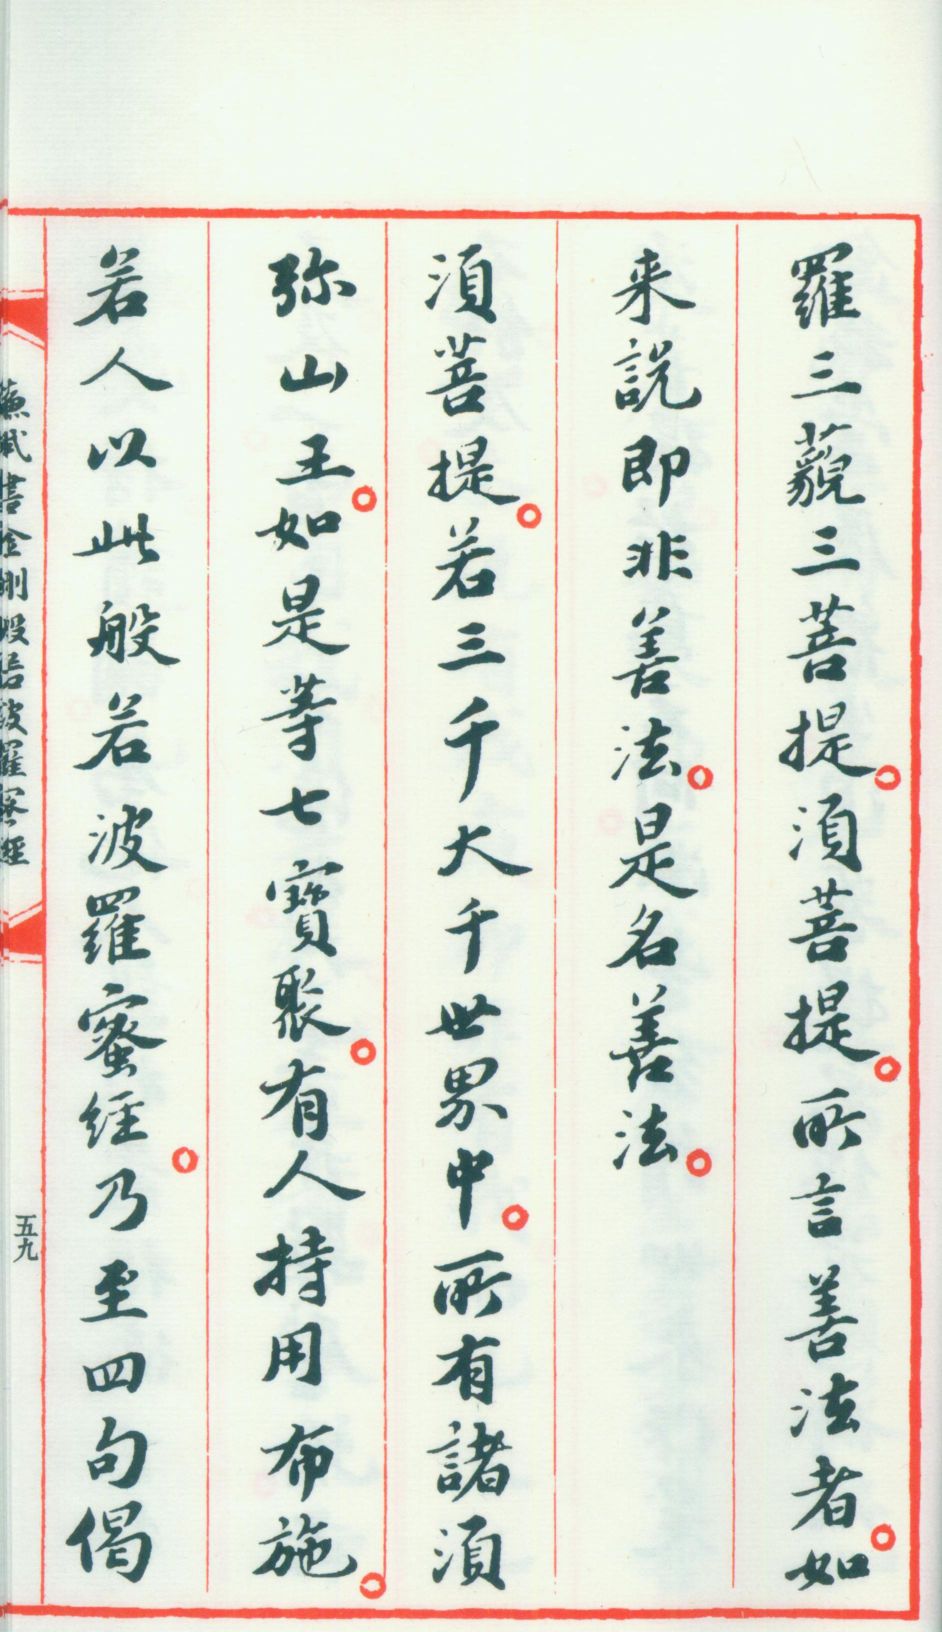 羅三藐三菩提。須菩提。所言善法者。如
来説即非善法。是名善法。
須菩提。若三千大千世界中。所有諸須
弥山王。如是等七寶聚。有人持用布施。
若人以此般若波羅蜜經。乃至四句偈
書金剛般若波羅蜜經
五九